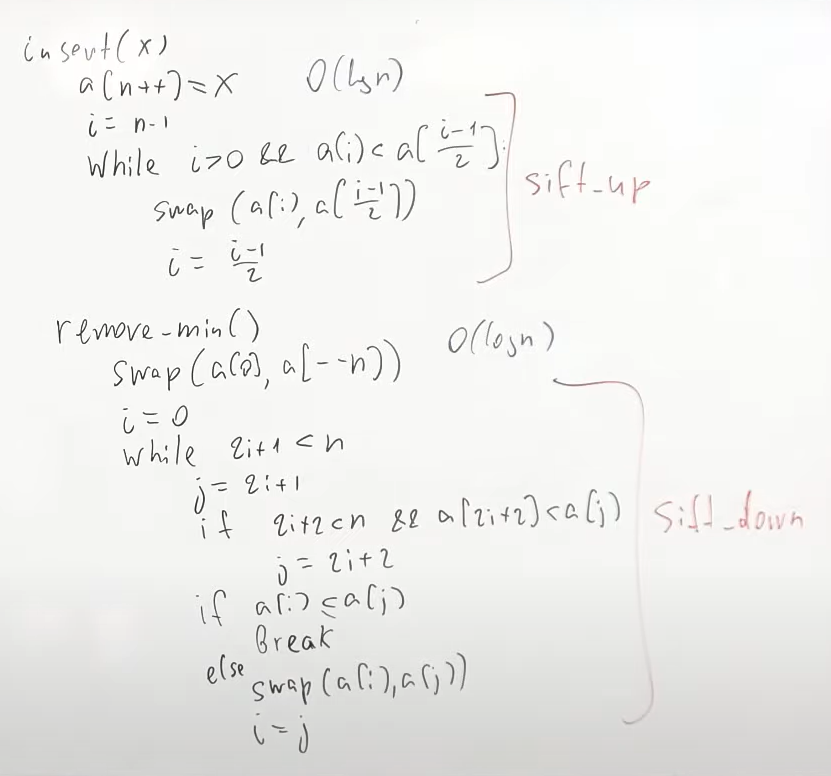 insert(x)
a[n++] = x O(log n)
i = n-1
while i>0 && a[i] < a[(i-1)/2]
swap(a[i], a[(i-1)/2])
i = (i-1)/2
sift_up
remove-min()
swap(a[0], a[--n]) O(log n)
i = 0
while 2i+1 < n
j = 2i+1
if 2i+2<n && a[2i+2]<a[j]
j = 2i+2
if a[i] ≤ a[j]
Break
else
swap(a[i], a[j])
i = j
sift_down